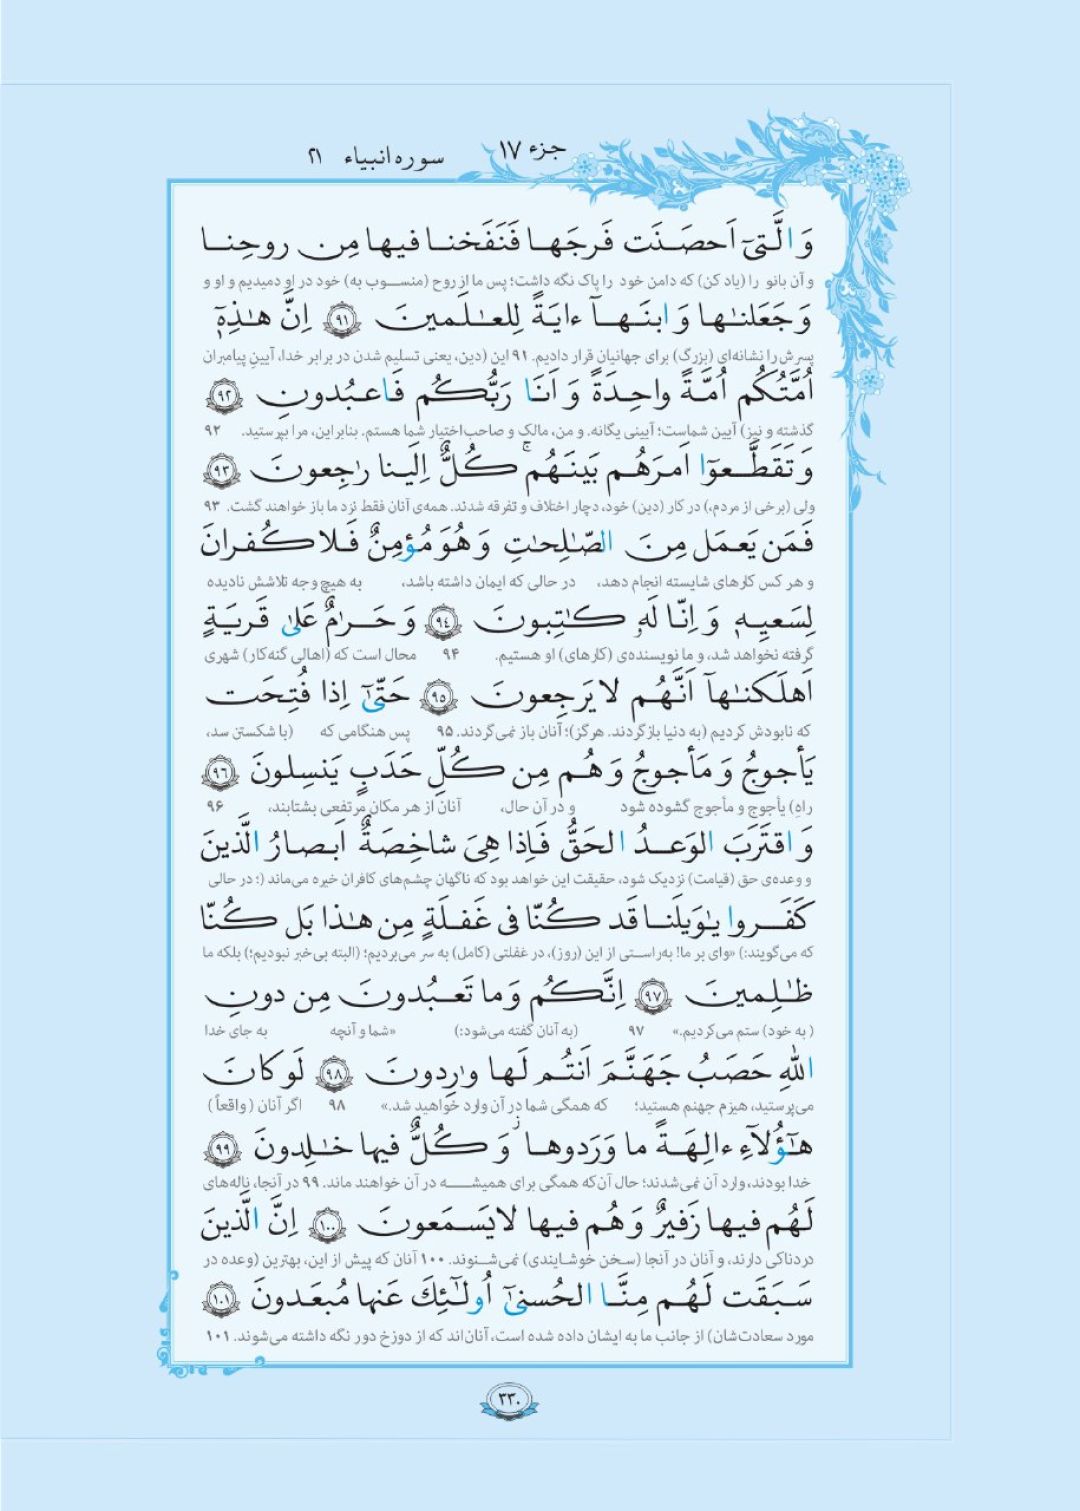 جزء ۱۷
سوره انبیاء ۲۱
وَالَّتیٓ اَحصَنَت فَرجَها فَنَفَخنا فیها مِن روحِنا
و آن بانو را (یاد کن) که دامن خود را پاک نگه داشت؛ پس ما از روح (منسوب به) خود در او دمیدیم و او و
وَ جَعَلنٰها وَ ابنَهآ ءایَةً لِلعٰلَمینَ ﴿٩١﴾ اِنَّ هٰذِهٖٓ
پسرش را نشانه‌ای (بزرگ) برای جهانیان قرار دادیم. ۹۱ این (دین، یعنی تسلیم شدن در برابر خدا، آیینِ پیامبران
اُمَّتُکُم اُمَّةً واحِدَةً وَ اَنَا رَبُّکُم فَاعبُدونِ ﴿٩٢﴾
گذشته و نیز) آیین شماست؛ آیینی یگانه. و من، مالک و صاحب‌اختیار شما هستم. بنابراین، مرا بپرستید. ۹۲
وَ تَقَطَّعوٓا اَمرَهُم بَینَهُم ۚ کُلٌّ اِلَینا رٰجِعونَ ﴿٩٣﴾
ولی (برخی از مردم،) در کار (دین) خود، دچار اختلاف و تفرقه شدند. همه‌ی آنان فقط نزد ما باز خواهند گشت. ۹۳
فَمَن یَعمَل مِنَ الصّٰلِحٰتِ وَ هُوَ مُؤمِنٌ فَلا کُفرانَ
و هر کس کارهای شایسته انجام دهد، در حالی که ایمان داشته باشد، به هیچ وجه تلاشش نادیده
لِسَعیِهٖ وَ اِنّا لَهٗ کٰتِبونَ ﴿٩٤﴾ وَ حَرٰمٌ عَلیٰ قَریَةٍ
گرفته نخواهد شد، و ما نویسنده‌ی (کارهای) او هستیم. ۹۴ محال است که (اهالی گنه‌کار) شهری
اَهلَکنٰهآ اَنَّهُم لا یَرجِعونَ ﴿٩٥﴾ حَتّیٰٓ اِذا فُتِحَت
که نابودش کردیم (به دنیا بازگردند. هرگز)؛ آنان باز نمی‌گردند. ۹۵ پس هنگامی که (با شکستن سد،
یَأجوجُ وَ مَأجوجُ وَ هُم مِن کُلِّ حَدَبٍ یَنسِلونَ ﴿٩٦﴾
راهِ) یأجوج و مأجوج گشوده شود و در آن حال، آنان از هر مکانِ مرتفعی بشتابند، ۹۶
وَ اقتَرَبَ الوَعدُ الحَقُّ فَاِذا هِیَ شاخِصَةٌ اَبصارُ الَّذینَ
و وعده‌ی حق (قیامت) نزدیک شود، حقیقت این خواهد بود که ناگهان چشم‌های کافران خیره می‌ماند (؛ در حالی
کَفَروا یٰوَیلَنا قَد کُنّا فی غَفلَةٍ مِن هٰذا بَل کُنّا
که می‌گویند:) «وای بر ما! به‌راستی از این (روز)، در غفلتی (کامل) به سر می‌بردیم؛ (البته بی‌خبر نبودیم؛) بلکه ما
ظٰلِمینَ ﴿٩٧﴾ اِنَّکُم وَ ما تَعبُدونَ مِن دونِ
( به خود) ستم می‌کردیم.» ۹۷ (به آنان گفته می‌شود:) «شما و آنچه به جای خدا
اللهِ حَصَبُ جَهَنَّمَ اَنتُم لَها وٰرِدونَ ﴿٩٨﴾ لَو کانَ
می‌پرستید، هیزم جهنم هستید؛ که همگی شما در آن وارد خواهید شد.» ۹۸ اگر آنان ( واقعاً )
هٰٓؤُلآءِ ءالِهَةً ما وَرَدوها ۖ وَ کُلٌّ فیها خٰلِدونَ ﴿٩٩﴾
خدا بودند، وارد آن نمی‌شدند؛ حال آن‌که همگی برای همیشه در آن خواهند ماند. ۹۹ در آنجا، ناله‌های
لَهُم فیها زَفیرٌ وَ هُم فیها لا یَسمَعونَ ﴿١٠٠﴾ اِنَّ الَّذینَ
دردناکی دارند، و آنان در آنجا (سخن خوشایندی) نمی‌شنوند. ۱۰۰ آنان که پیش از این، بهترین (وعده در
سَبَقَت لَهُم مِنَّا الحُسنیٰٓ اُولٰٓئِکَ عَنها مُبعَدونَ ﴿١٠١﴾
مورد سعادت‌شان) از جانب ما به ایشان داده شده است، آنان‌اند که از دوزخ دور نگه داشته می‌شوند. ۱۰۱
۳۳۰